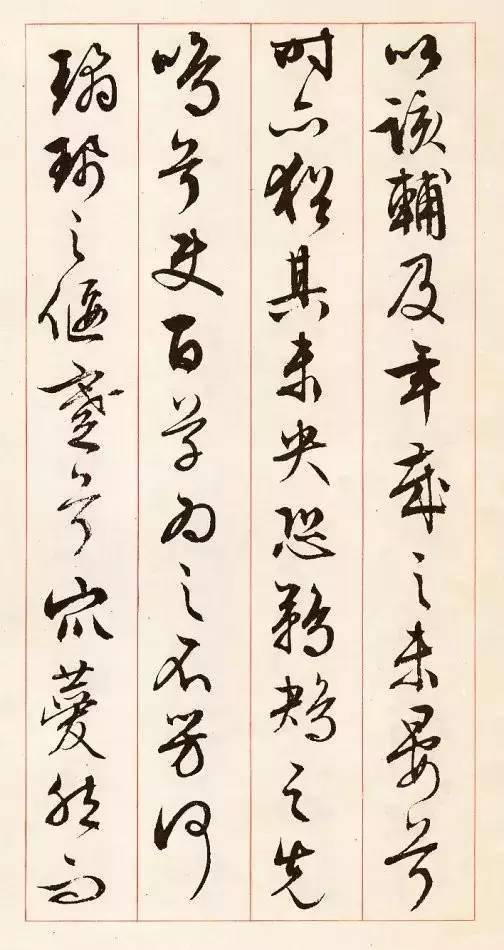 以該輔及年歲之未晏兮
時亦猶其未央恐鵜鴂之先
鳴兮使百草為之不芳何
瓊珮之偃蹇兮眾薆然而